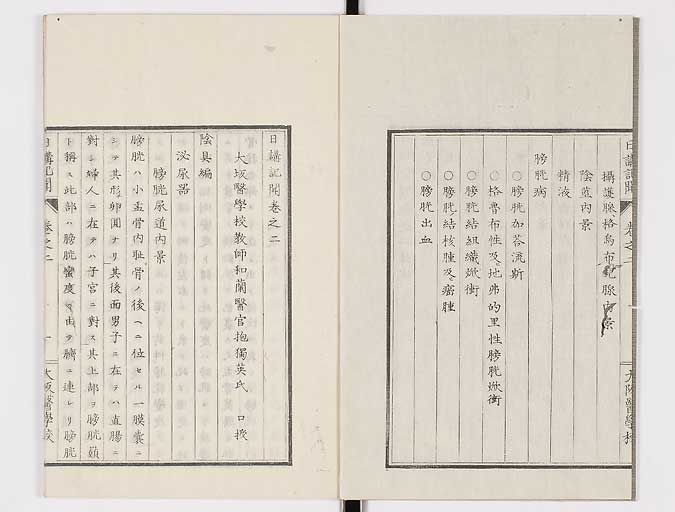 日講記聞 卷之二 大阪醫學校
攝護腺格烏布兒腺內景
陰莖內景
精液
膀胱病
○膀胱加荅流斯
○格魯布性及地弗的里性膀胱焮衝
○膀胱結組織焮衝
○膀胱結核腫及瘤腫
○膀胱出血
日講記聞卷之二
大坂醫學校敎師和蘭醫官抱獨英氏 口授
陰具編
泌尿器
膀胱尿道內景
膀胱ハ小盂骨内耻骨ノ後ヘニ位セル一膜嚢ニ
シテ其形卵圓ナリ其後面男子ニ在テハ直腸ニ
對シ婦人ニ在テハ子宮ニ對ス其上部ヲ膀胱巓
ト稱ス此部ハ膀胱蠻度ニ由テ臍ニ連レリ膀胱
日講記聞 卷之二 一 大阪醫學校